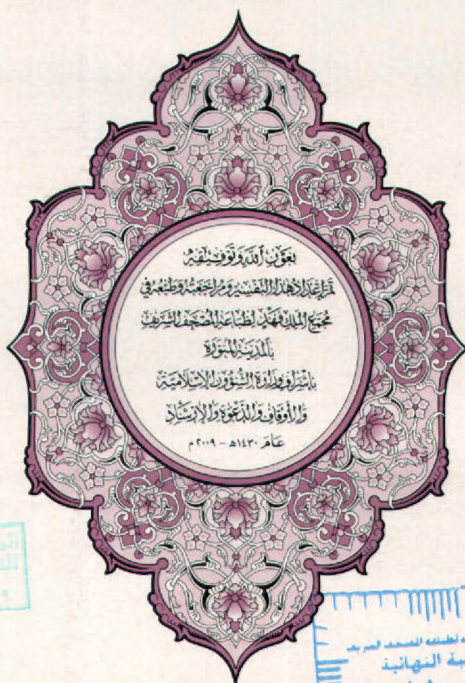 بِعَوْنِ اللَّهِ وَتَوْفِيقِهِ
تَمَّ إِعْدَادُ هَٰذَا التَّفْسِيرِ وَمُرَاجَعَتُهُ وَطَبْعُهُ فِي
مُجَمَّعِ المَلِكِ فَهْدٍ لِطِبَاعَةِ المُصْحَفِ الشَّرِيفِ
بِالْمَدِينَةِ المُنَوَّرَةِ
بِإِشْرَافِ وِزَارَةِ الشُّؤُونِ الإِسْلَامِيَّةِ
وَالأَوْقَافِ وَالدَّعْوَةِ وَالإِرْشَادِ
عَامَ ١٤٣٠هـ - ٢٠٠٩م
لطباعة المصحف الشريف
ـبة النهائية